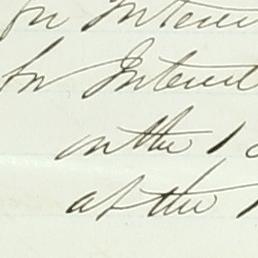 for Interest
for Interest
on the 1
at the